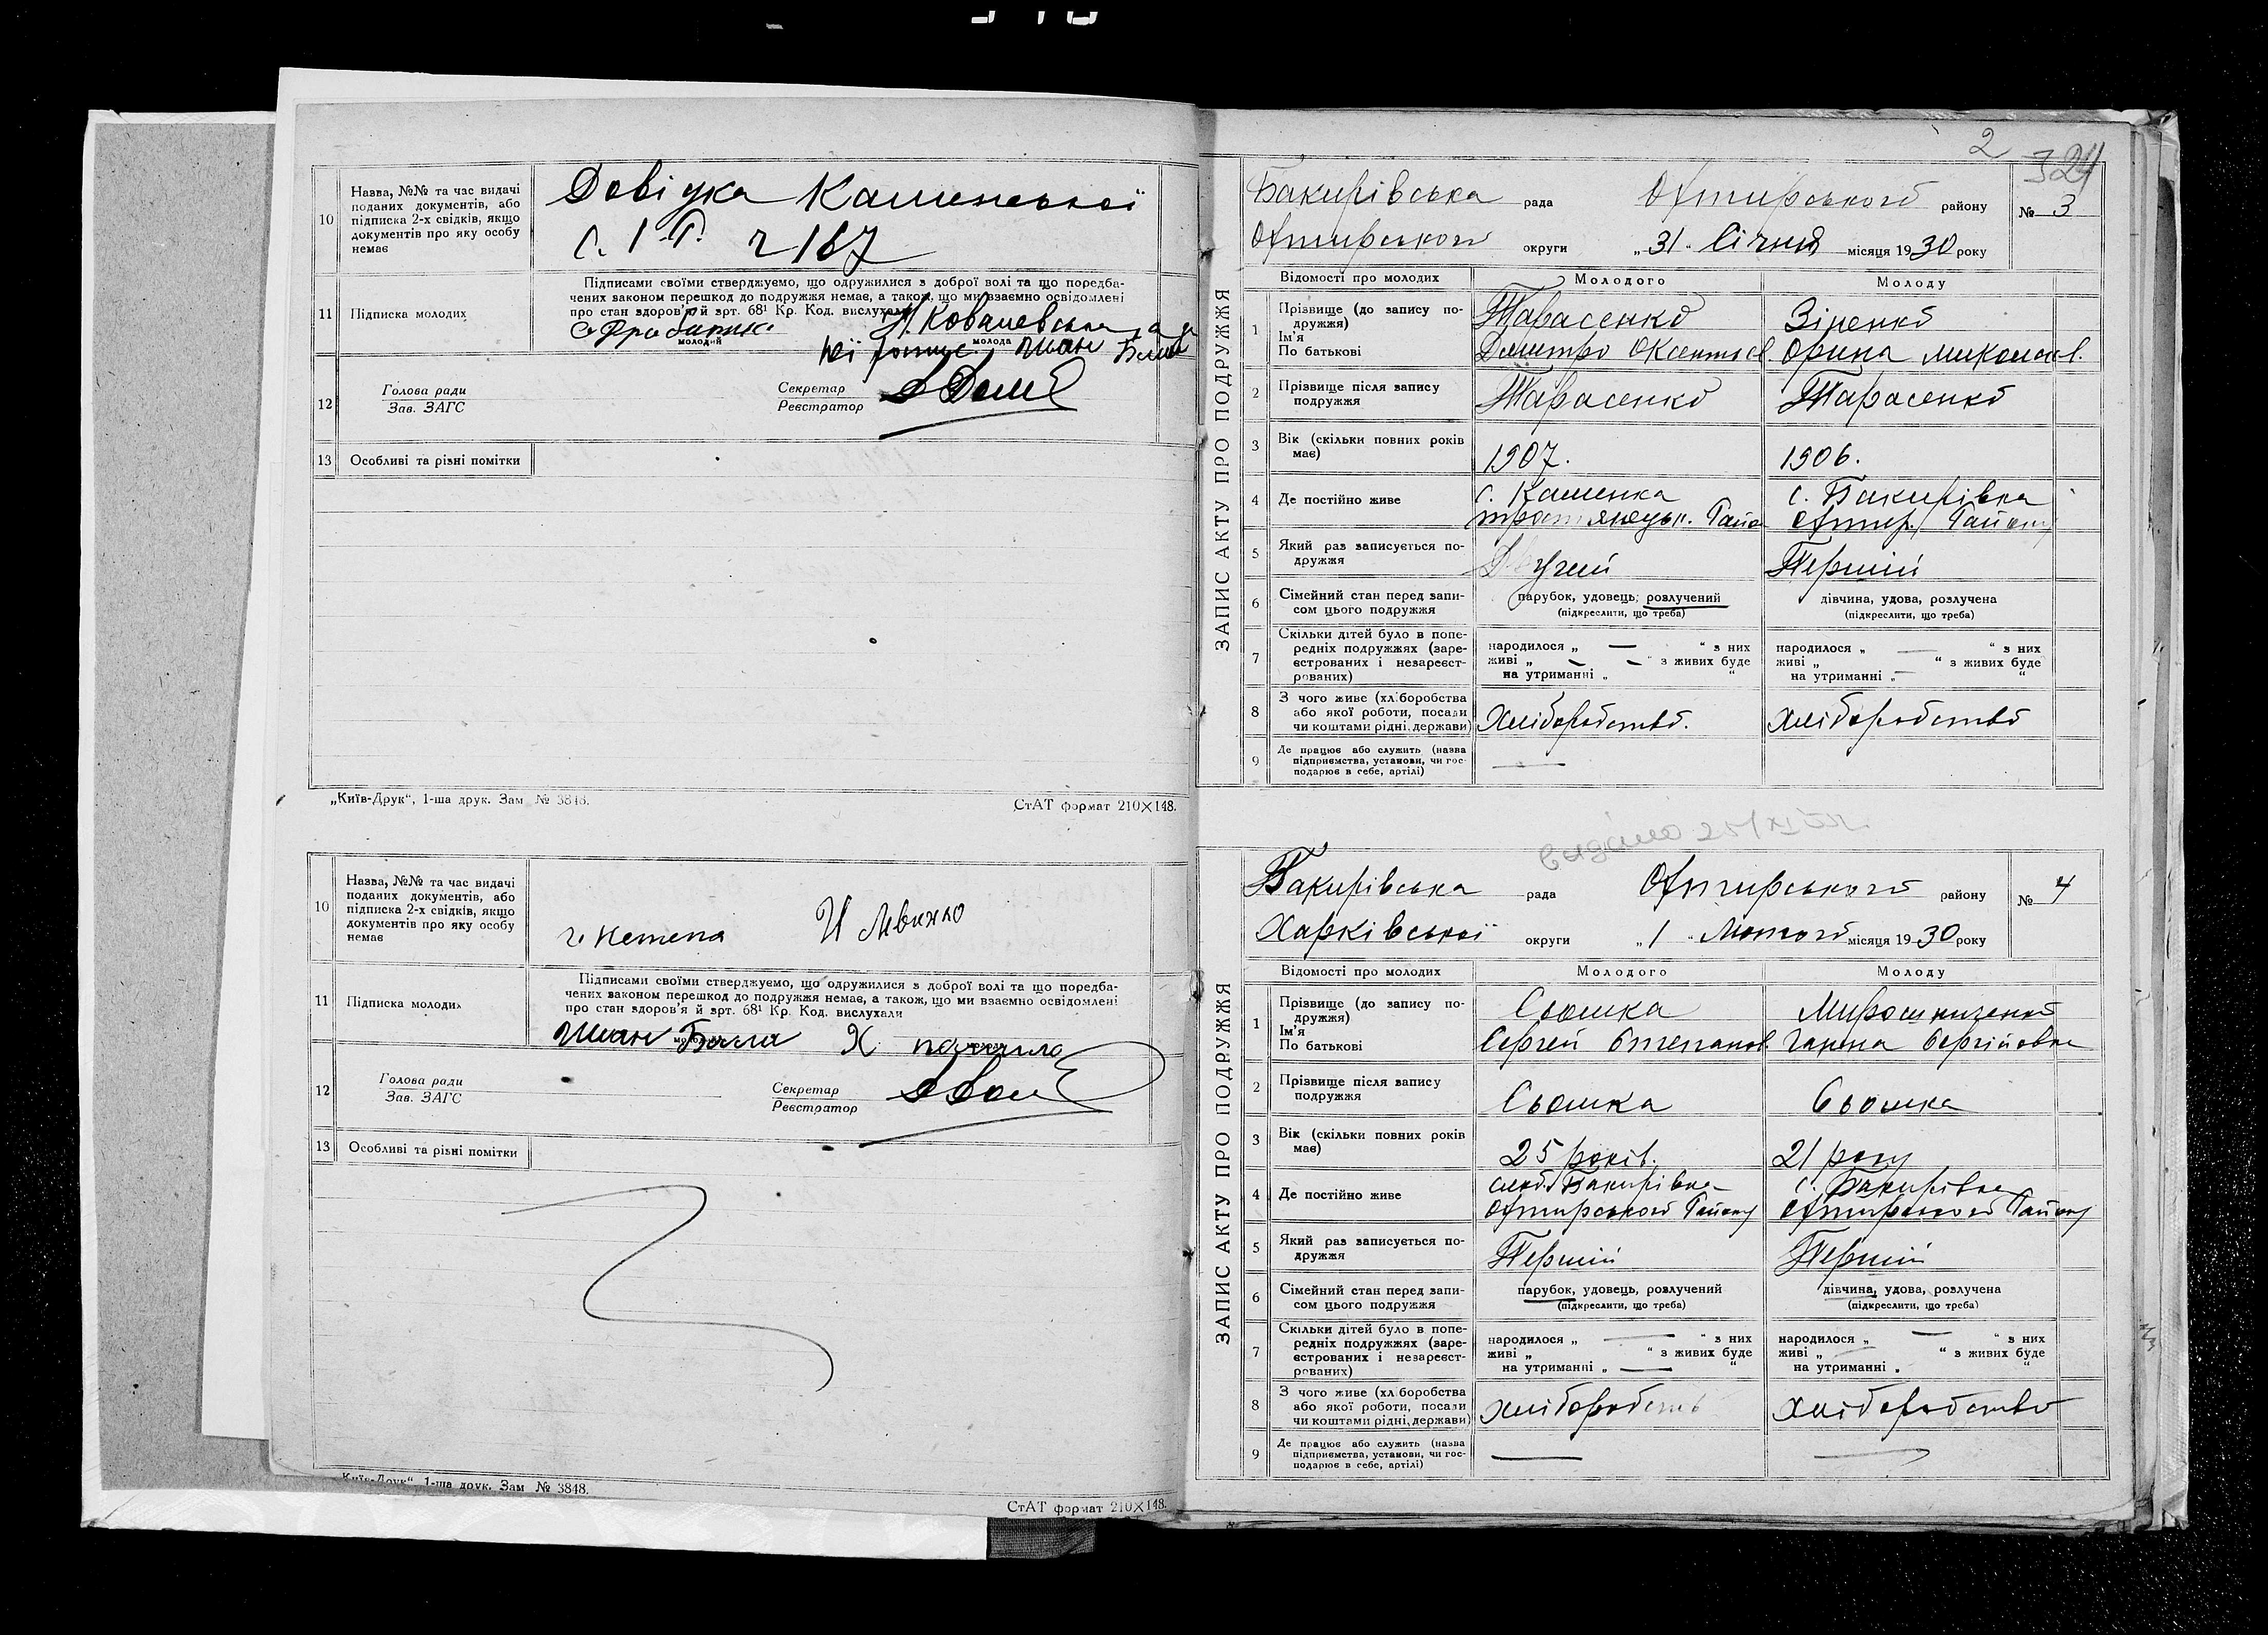 10
Назва, №№ та час видачі
поданих документів, або
підписка 2-х свідків, якщо
документів про яку особу
немає
Довідка Каменської
с. 167
11
Підписка молодих
Підписами своїми стверджуємо, що одружилися з доброї волі та що передба-
чених законом перешкод до подружжя немає, а також, що ми взаємно освідомлені
про стан здоров'я й арт. 68¹ Кр. Код. вислухали
Н. Ковалевська
молодий
молода
12
Голова ради
Зав. ЗАГС
Секретар
Реєстратор
13
Особливі та різні помітки
„Київ-Друк“, 1-ша друк. Зам № 3848.
СтАТ формат 210×148.
10
Назва, №№ та час видачі
поданих документів, або
підписка 2-х свідків, якщо
документів про яку особу
немає
11
Підписка молодих
Підписами своїми стверджуємо, що одружилися з доброї волі та що поредба-
чених законом перешкод до подружжя немає, а також, що ми взаємно освідомлені
про стан здоров'я й арт. 68¹ Кр. Код. вислухали
12
Голова ради
Зав. ЗАГС
Секретар
Реєстратор
13
Особливі та різні помітки
„Київ-Друк“, 1-ша друк. Зам № 3848.
СтАТ формат 210×148.
2
324
ЗАПИС АКТУ ПРО ПОДРУЖЖЯ
Бакирівська рада Охтирського району № 3
Охтирської округи „31“ Січня місяця 1930 року
Відомості про молодих
Молодого
Молоду
1
Прізвище (до запису по-
дружжя)
Ім'я
По батькові
Тарасенко
Дмитро
Зіненко
Орина Миколаєв.
2
Прізвище після запису
подружжя
Тарасенко
Тарасенко
3
Вік (скільки повних років
має)
1907.
1906.
4
Де постійно живе
с. Каменка
с. Бакирівка
Охтир. Району
5
Який раз записується по-
дружжя
Другий
Перший
6
Сімейний стан перед запи-
сом цього подружжя
парубок, удовець, розлучений
(підкреслити, що треба)
дівчина, удова, розлучена
(підкреслити, що треба)
7
Скільки дітей було в попе-
редніх подружжях (заре-
єстрованих і незареєст-
рованих)
народилося „ — “ з них
живі „ — “ з живих буде
на утриманні „ “
народилося „ — “ з них
живі „ “ з живих буде
на утриманні „ — “
8
З чого живе (хліборобства
або якої роботи, посади
чи коштами рідні, держави)
Хліборобство.
Хліборобство
9
Де працює або служить (назва
підприємства, установи, чи гос-
подарює в себе, артілі)
—
видано 25/XI
ЗАПИС АКТУ ПРО ПОДРУЖЖЯ
Бакирівська рада Охтирського району № 4
Харківської округи „1“ Лютого місяця 1930 року
Відомості про молодих
Молодого
Молоду
1
Прізвище (до запису по-
дружжя)
Ім'я
По батькові
Сьомка
Сергей Степанов.
Мирошниченко
Ганна Сергійовна
2
Прізвище після запису
подружжя
Сьомка
Сьомка
3
Вік (скільки повних років
має)
25 років.
21 року
4
Де постійно живе
слоб. Бакирівка
Охтирського Району
с. Бакирівка
Охтирського Району
5
Який раз записується по-
дружжя
Перший
Перший
6
Сімейний стан перед запи-
сом цього подружжя
парубок, удовець, розлучений
(підкреслити, що треба)
дівчина, удова, розлучена
(підкреслити, що треба)
7
Скільки дітей було в попе-
редніх подружжях (заре-
єстрованих і незареєст-
рованих)
народилося „ — “ з них
живі „ “ з живих буде
на утриманні „ — “
народилося „ — “ з них
живі „ “ з живих буде
на утриманні „ “
8
З чого живе (хліборобства
або якої роботи, посади
чи коштами рідні, держави)
Хліборобств
Хліборобство
9
Де працює або служить (назва
підприємства, установи, чи гос-
подарює в себе, артілі)
—
—